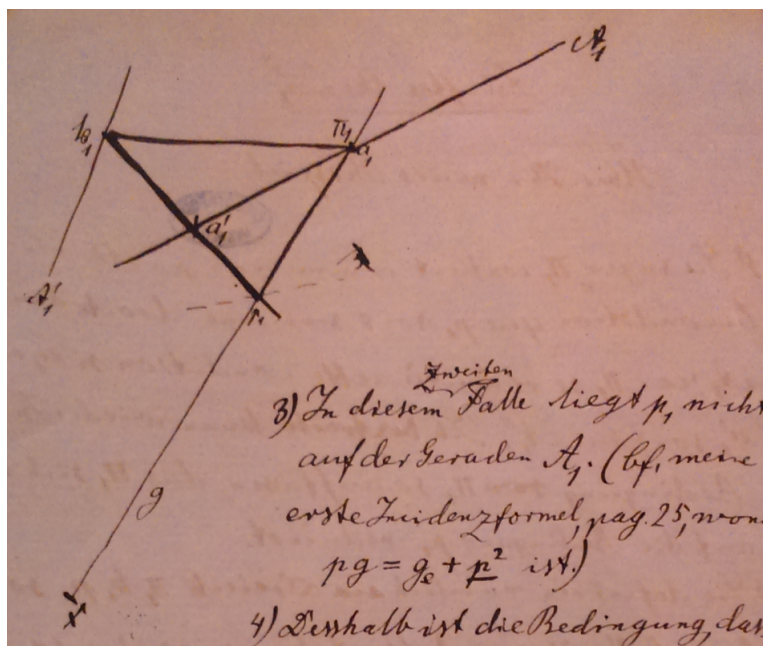 A₁
b₁
π₁
a₁
a₁'
A₁'
p₁
g
zweiten
3) In diesem Falle liegt p₁ nicht
auf der Geraden A₁. (bf. meine
erste Incidenzformel, pag. 25, wo
pg = gₑ + p² ist.)
4) Desshalb ist die Bedingung, dass